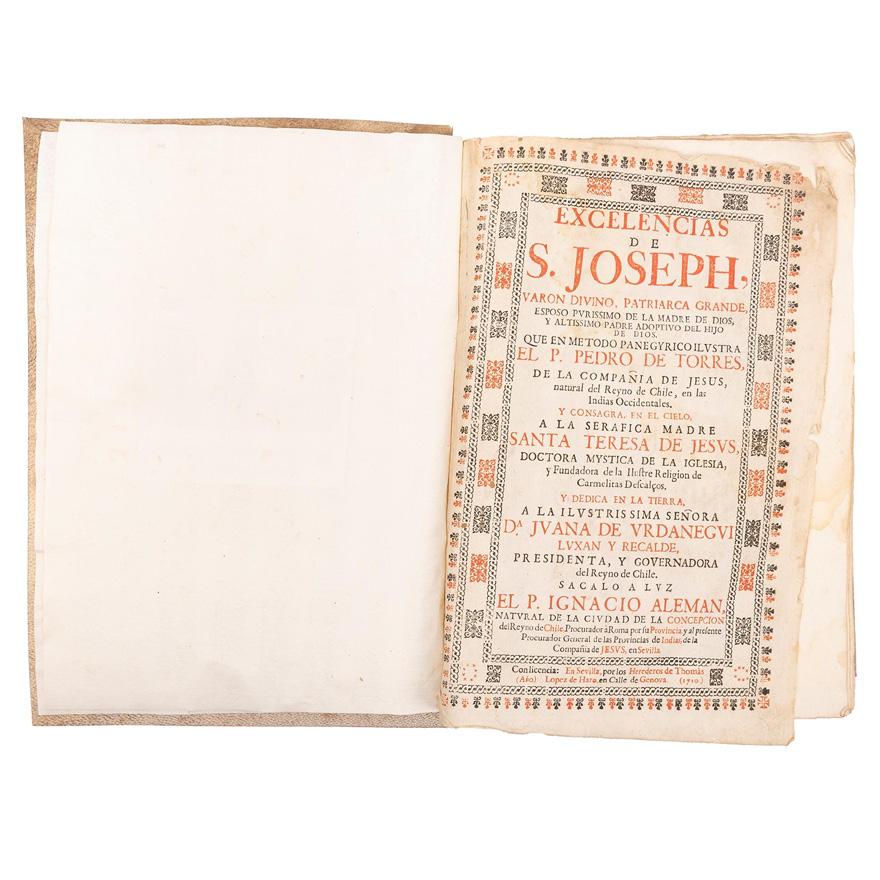 EXCELENCIAS
DE
S. JOSEPH,
VARON DIVINO, PATRIARCA GRANDE,
ESPOSO PVRISSIMO DE LA MADRE DE DIOS,
Y ALTISSIMO PADRE ADOPTIVO DEL HIJO
DE DIOS.
QUE EN METODO PANEGYRICO ILVSTRA
EL P. PEDRO DE TORRES,
DE LA COMPAÑIA DE JESUS,
natural del Reyno de Chile, en las
Indias Occidentales.
Y CONSAGRA, EN EL CIELO,
A LA SERAFICA MADRE
SANTA TERESA DE JESVS,
DOCTORA MYSTICA DE LA IGLESIA,
y Fundadora de la Ilustre Religion de
Carmelitas Descalços.
Y DEDICA EN LA TIERRA,
A LA ILVSTRISSIMA SEÑORA
D.ª JVANA DE VRDANEGVI
LVXAN Y RECALDE,
PRESIDENTA, Y GOVERNADORA
del Reyno de Chile.
SACALO A LVZ
EL P. IGNACIO ALEMAN,
NATVRAL DE LA CIVDAD DE LA CONCEPCION
del Reyno de Chile, Procurador à Roma por su Provincia y al presente
Procurador General de las Provincias de Indias, de la
Compañia de JESVS, en Sevilla
Con licencia: En Sevilla, por los Herederos de Thomàs
(Año) Lopez de Haro, en Calle de Genova. (1710)